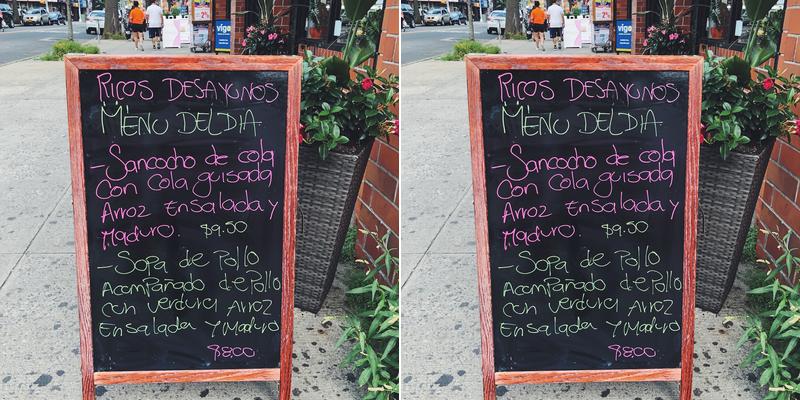 RICOS DESAYUNOS
MENU DEL DIA
- Sancocho de cola
con cola guisada
Arroz Ensalada y
Maduro. $9.50
- Sopa de Pollo
Acompañado de Pollo
con verdura Arroz
Ensalada y Maduro
$8.00
RICOS DESAYUNOS
MENU DEL DIA
- Sancocho de cola
con cola guisada
Arroz Ensalada y
Maduro. $9.50
- Sopa de Pollo
Acompañado de Pollo
con verdura Arroz
Ensalada y Maduro
$8.00